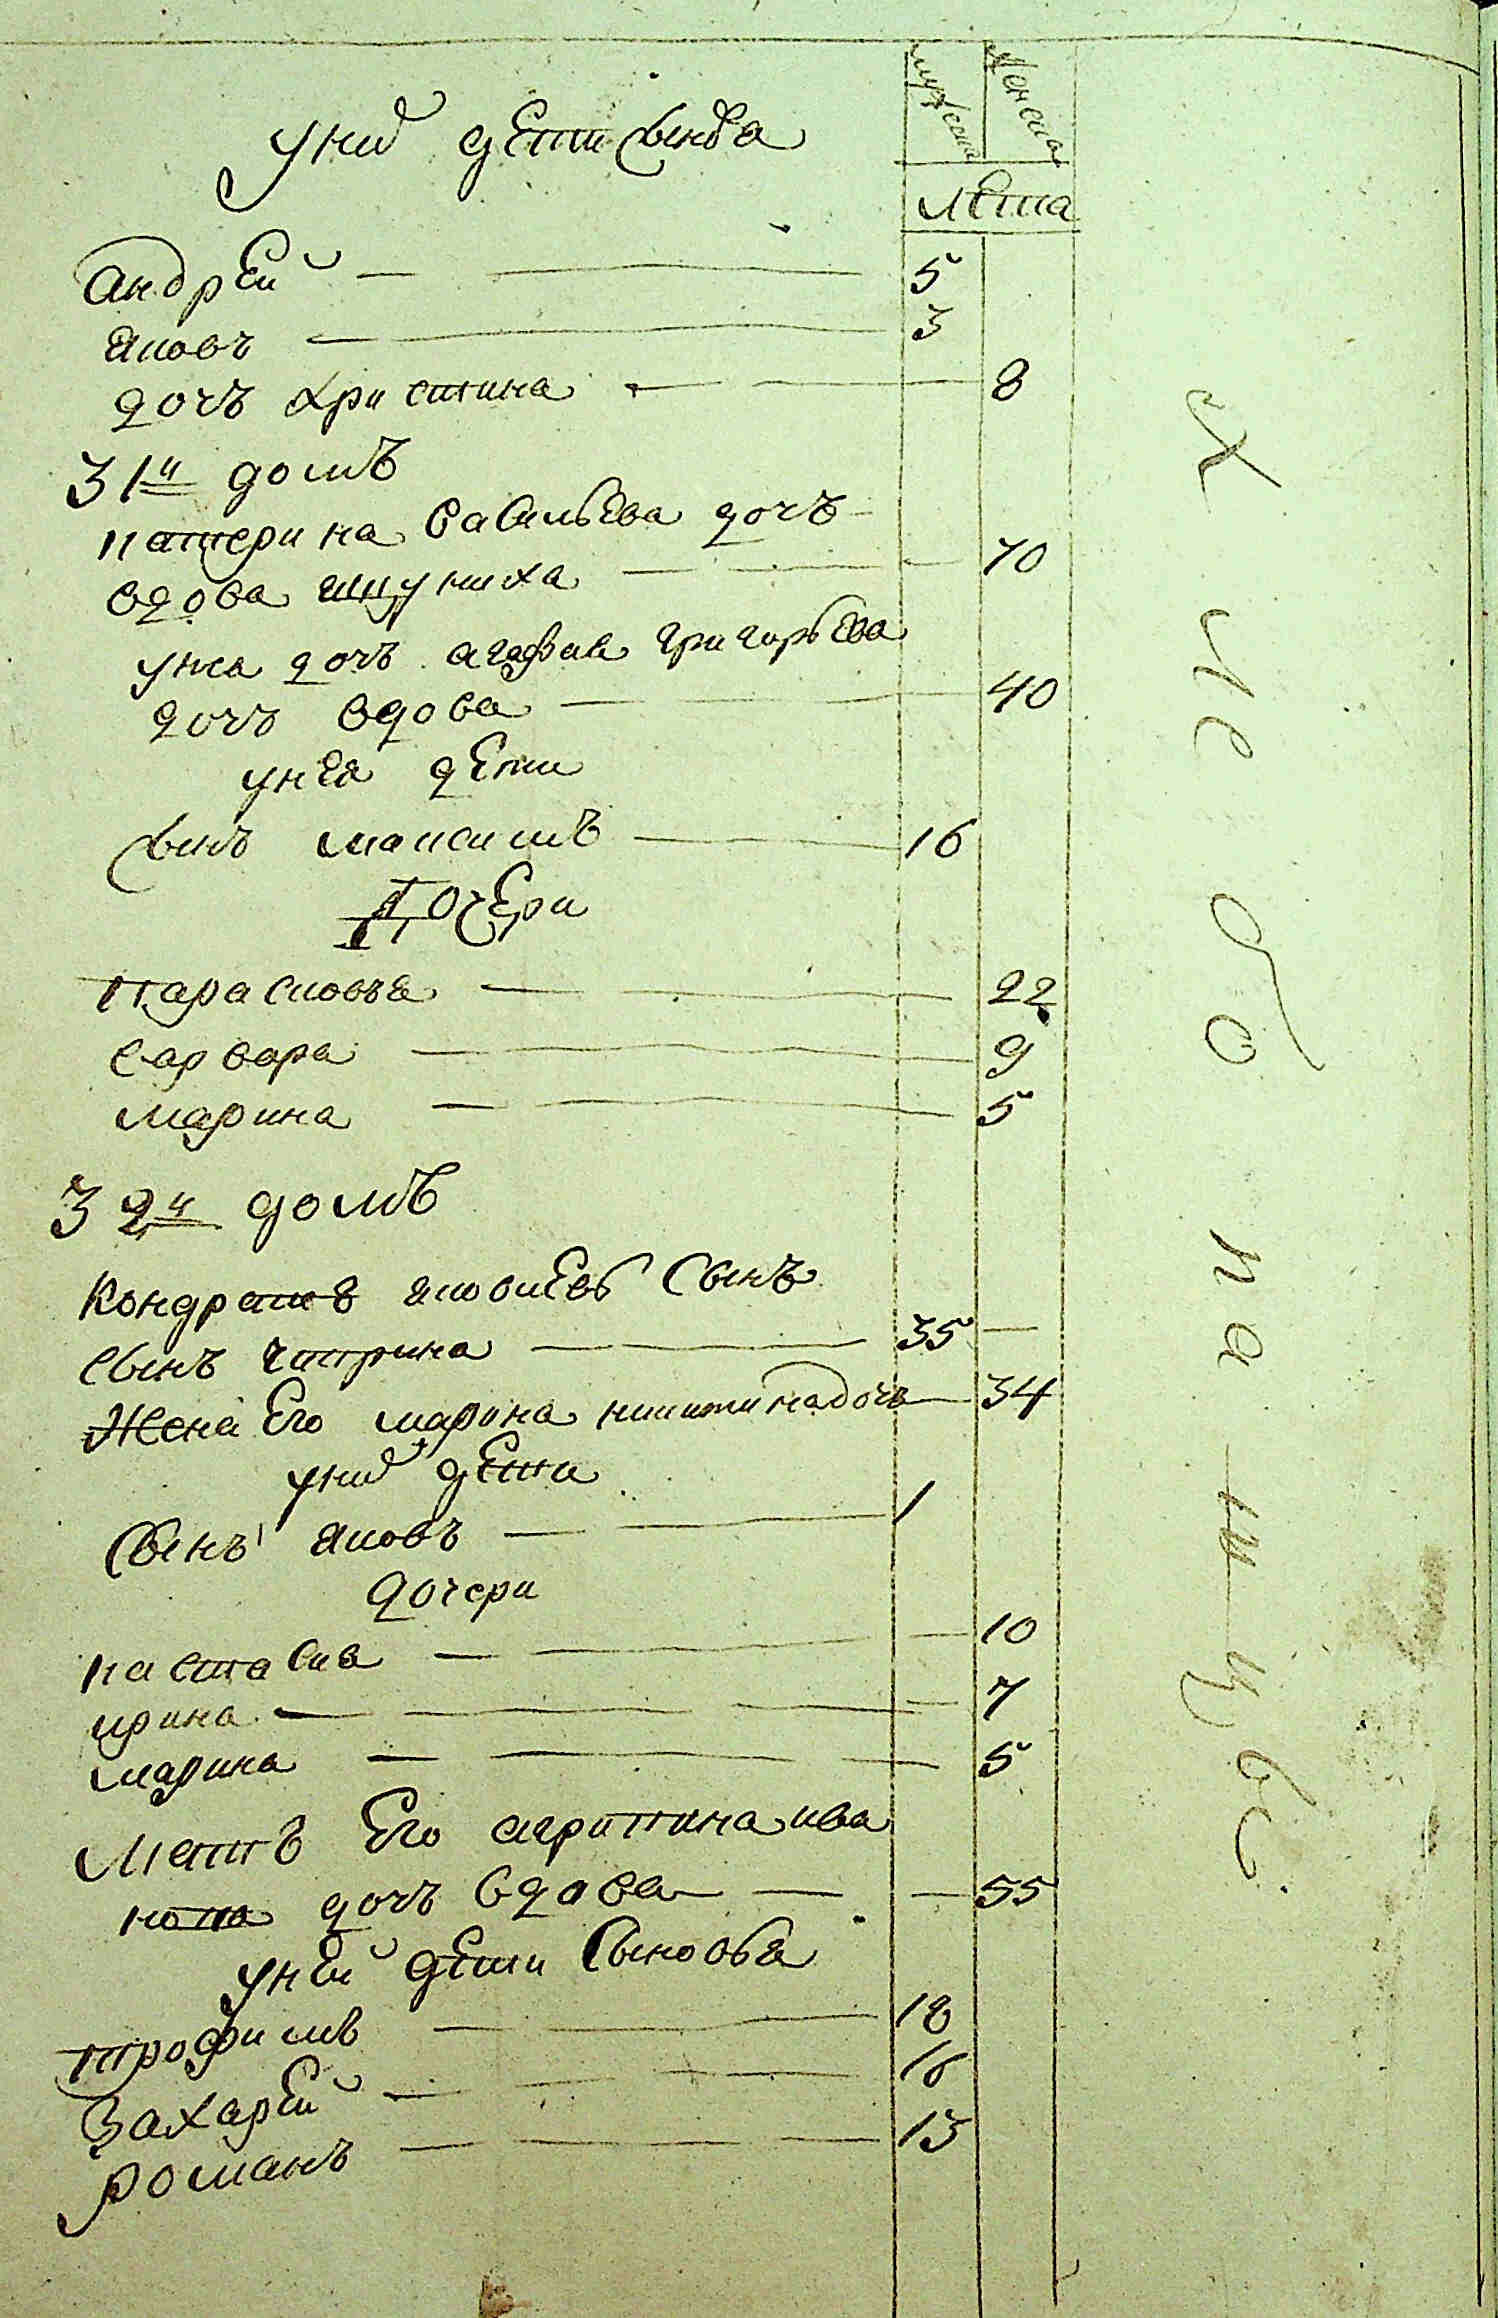 мужеска женска
лета
у них дети сынова
андрей 5
яковъ 3
дочъ христина 8
31й домъ
катерина васильева дочъ
вдова 70
у нее дочъ агафия григорьева
дочъ вдова 40
у нея дети
сынъ максимъ 16
дочери
парасковья 22
варвара 9
марина 5
32й домъ
кондратъ яковлевъ сынъ
сынъ 35
жена его марина никитина дочъ 34
у них дети
сынъ яковъ 1
дочери
настасия 10
ирина 7
марина 5
мать его агрипина ива
нова дочъ вдова 55
у ней дети сыновья
трофимъ 18
захарей 16
романъ 13